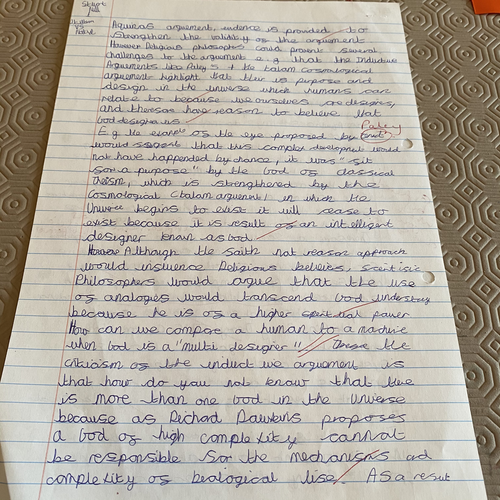 Aquinas arguement, evidence is provided to
strengthen the validity of the arguement
However Religious philosophers could present several
challenges to the arguement e.g that the Inductive
Arguments like Paley's & the kalam cosmological
arguement highlight that there is purpose and
design in the universe which humans can
relate to because we ourselves are designers,
and therefore have reason to believe that
God designed us
Paley
E.g the example of the eye proposed by
would suggest that this complex development would
not have happened by chance, it was "fit
for a purpose" by the God of classical
Theism, which is strengthened by the
Cosmological (kalam arguement) in which the
Universe begins to exist it will cease to
exist because it is result of an intelligent
designer known as God.
However Although the faith not reason approach
would influence Religious believers, scentific
Philosophers would argue that the use
of analogies would transcend God understanding
because he is of a higher spiritual power
How can we compare a human to a machine
when God is a "multi designer" the
criticism of the inductive arguement is
that how do you not know that there
is more than one God in the Universe
because as Richard Dawkins proposes
a God of high complexity cannot
be responsible for the mechanisms and
complexity of beological life. As a result